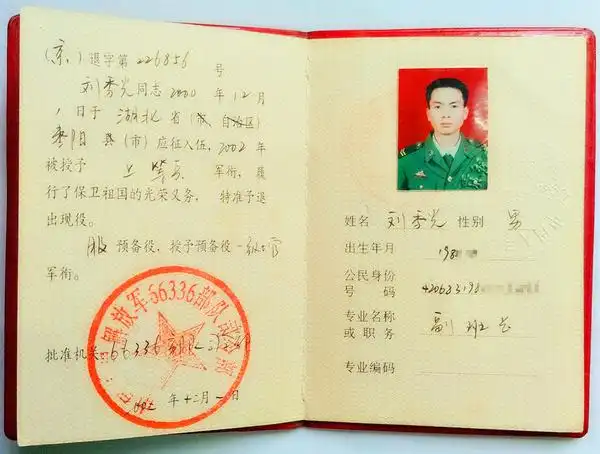 (京)退字第226856号
刘秀光同志2000年12月
1日于湖北省(市 自治区)
枣阳县(市)应征入伍,2002年
被授予上等兵军衔,履
行了保卫祖国的光荣义务,特准予退
出现役。
服预备役,授予预备役一级士官
军衔。
解放军66336部队
批准机关:66336部队
年十二月一日
姓名 刘秀光 性别 男
出生年月 198
公民身份
号码 420683198
专业名称
或职务 副班长
专业编码